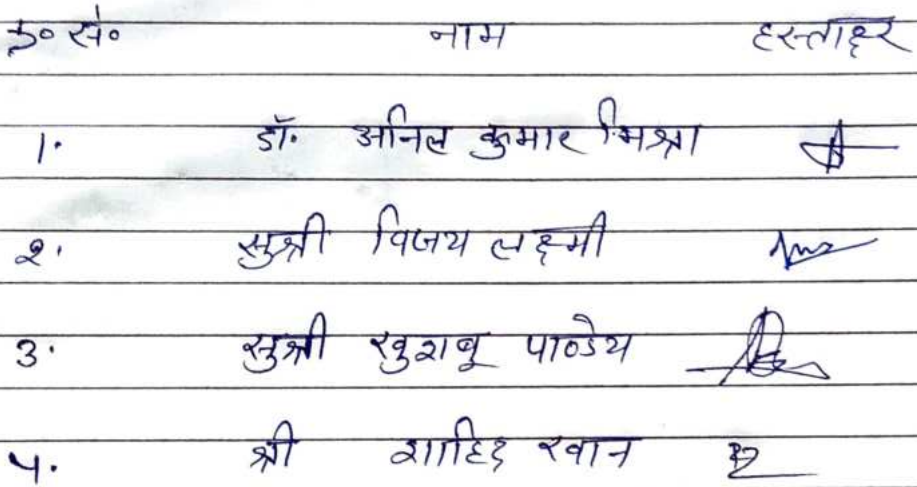 क्र० सं० नाम हस्ताक्षर
1. डॉ. अनिल कुमार मिश्रा
२. सुश्री विजय लक्ष्मी
३. सुश्री खुशबू पाण्डेय
४. श्री शाहिद खान